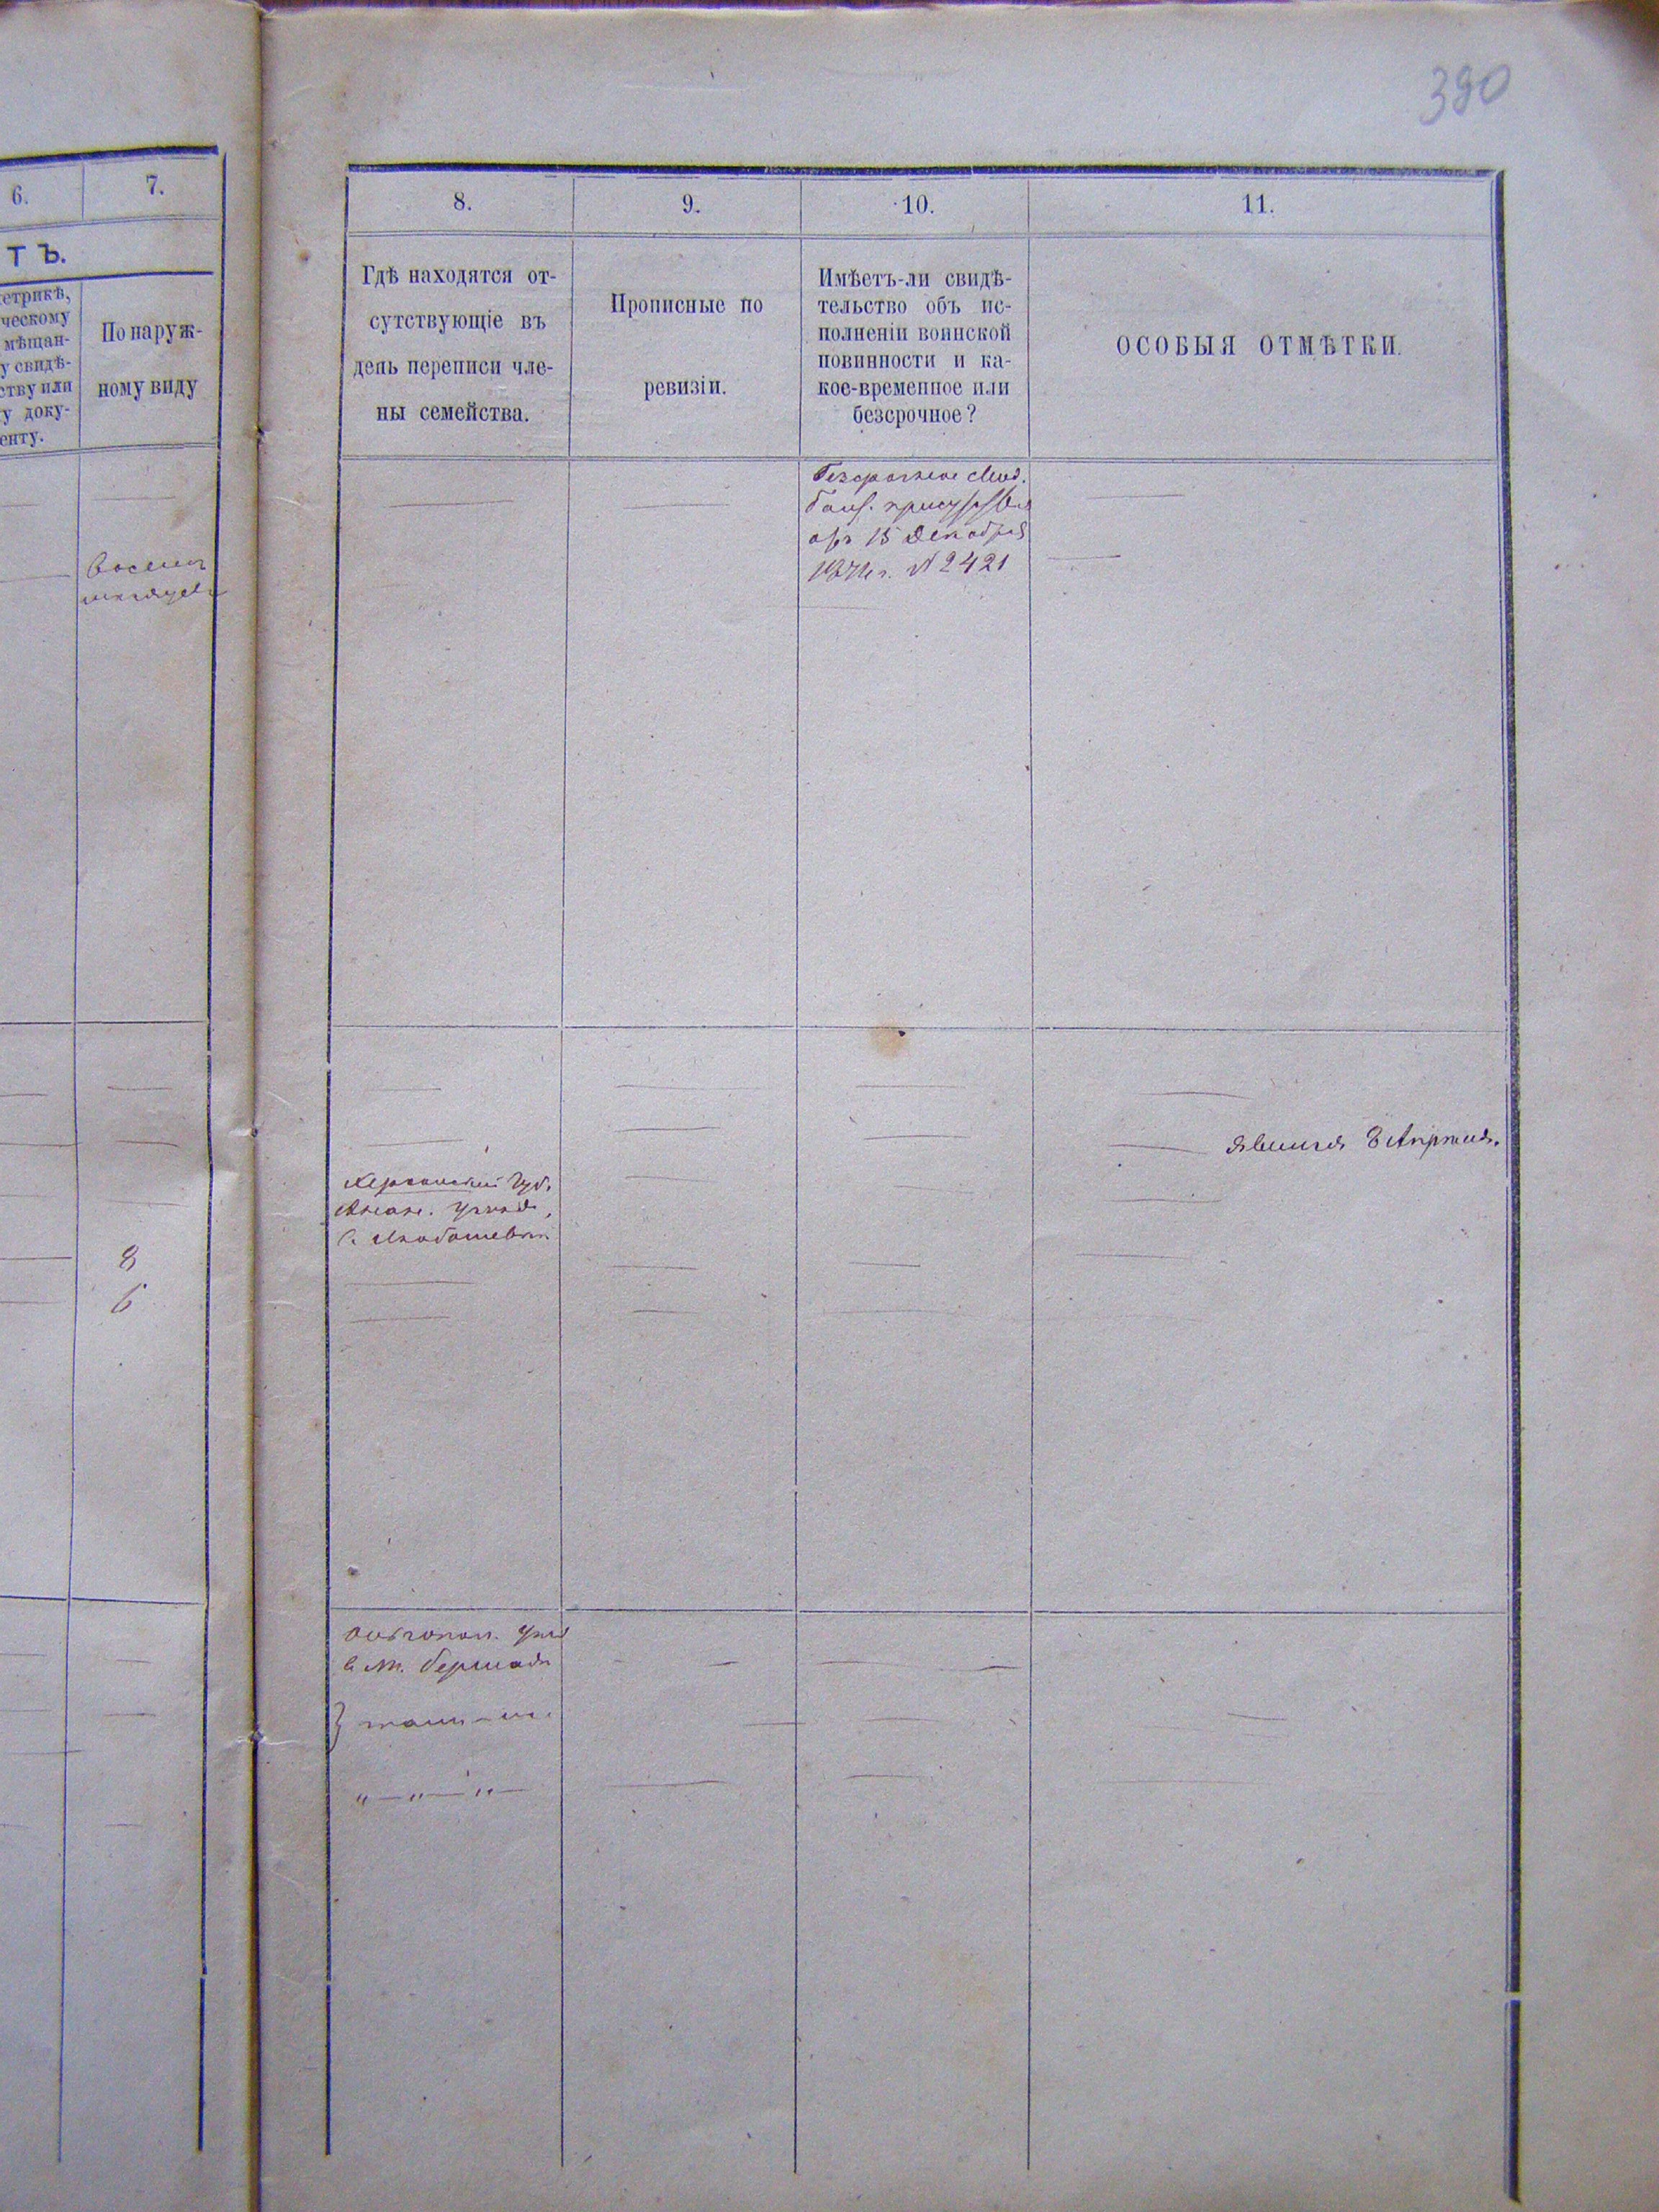 390
6.
7.
ТЪ.
етрикѣ,
ческому
мѣщан-
у свидѣ-
ству или
у доку-
енту.
По наруж-
ному виду
8
6
8.
9.
10.
11.
Гдѣ находятся от-
сутствующіе въ
день переписи чле-
ны семейства.
Прописные по
ревизіи.
Имѣетъ-ли свидѣ-
тельство объ ис-
полненіи воинской
повинности и ка-
кое-временное или
безсрочное?
ОСОБЫЯ ОТМѢТКИ.
Безсрочное свид.
присутствія
отъ 15 Декабря
№ 2421
Херсонской Губ.
Анан. уѣзда,
с.
явился 8 Апрѣля.
Ольгопол. уѣзд
в м. Бершади
тамъ-же
„ — „ — „ —